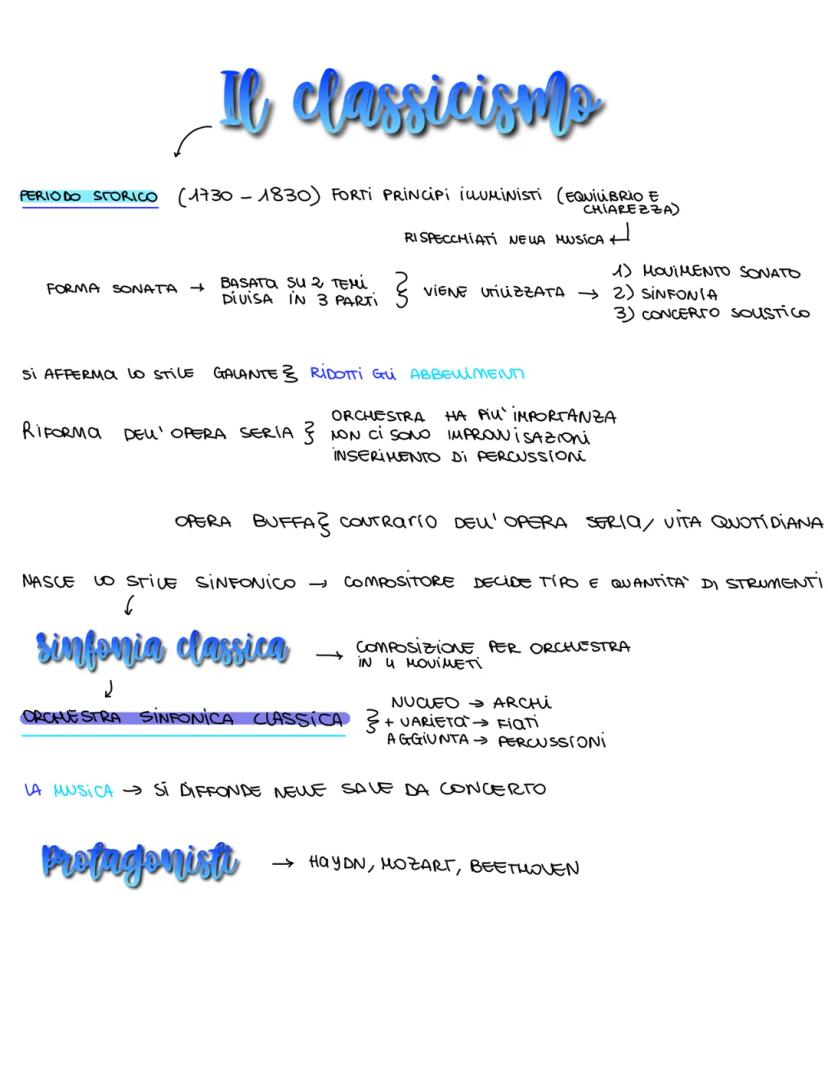 Il classicismo
PERIODO STORICO (1730 - 1830) FORTI PRINCIPI ILLUMINISTI (EQUILIBRIO E
CHIAREZZA)
RISPECCHIATI NELLA MUSICA
FORMA SONATA → BASATA SU 2 TEMI
DIVISA IN 3 PARTI
VIENE UTILIZZATA →
1) MOVIMENTO SONATO
2) SINFONIA
3) CONCERTO SOLISTICO
SI AFFERMA LO STILE GALANTE } RIDOTTI GLI ABBELLIMENTI
RIFORMA DELL'OPERA SERIA }
ORCHESTRA HA PIU' IMPORTANZA
NON CI SONO IMPROVVISAZIONI
INSERIMENTO DI PERCUSSIONI
OPERA BUFFA } CONTRARIO DELL'OPERA SERIA/ VITA QUOTIDIANA
NASCE LO STILE SINFONICO → COMPOSITORE DECIDE TIPO E QUANTITA' DI STRUMENTI
sinfonia classica → COMPOSIZIONE PER ORCHESTRA
IN 4 MOVIMETI
ORCHESTRA SINFONICA CLASSICA }
NUCLEO → ARCHI
+ VARIETA' → FIATI
AGGIUNTA → PERCUSSIONI
LA MUSICA → SI DIFFONDE NELLE SALE DA CONCERTO
Protagonisti → HAYDN, MOZART, BEETHOVEN